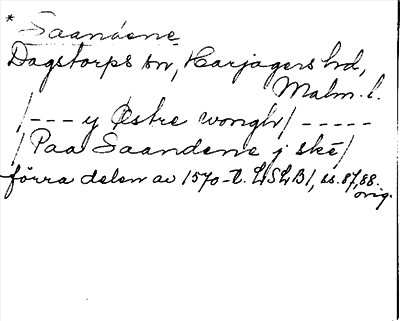 * Saandene
Dagstorps sn, Harjagers hd,
Malm. l.
/--- y Østre wongh/ -----
/Paa Saandene j ske/
förra delen av 1570-t. LSLB1, ss. 87, 88.
orig.